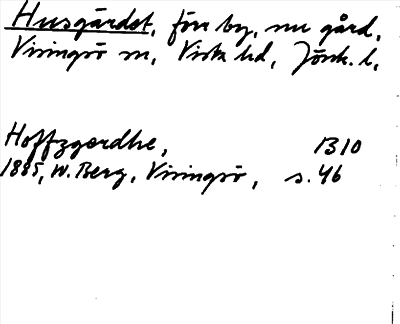 Husgärdet, förr by, nu gård,
Visingsö sn, Vista hd, Jönk. l.
Hoffzgərdhe, 1310
1885, W. Berg, Visingsö, s. 46